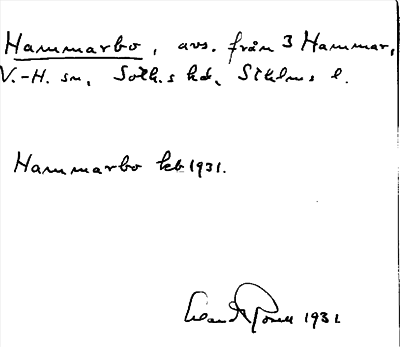 Hammarbo, avs. från 3 Hammar,
V.-H. sn, Soth.s hd, Sthlms l.
Hammarbo kb 1931.
1931